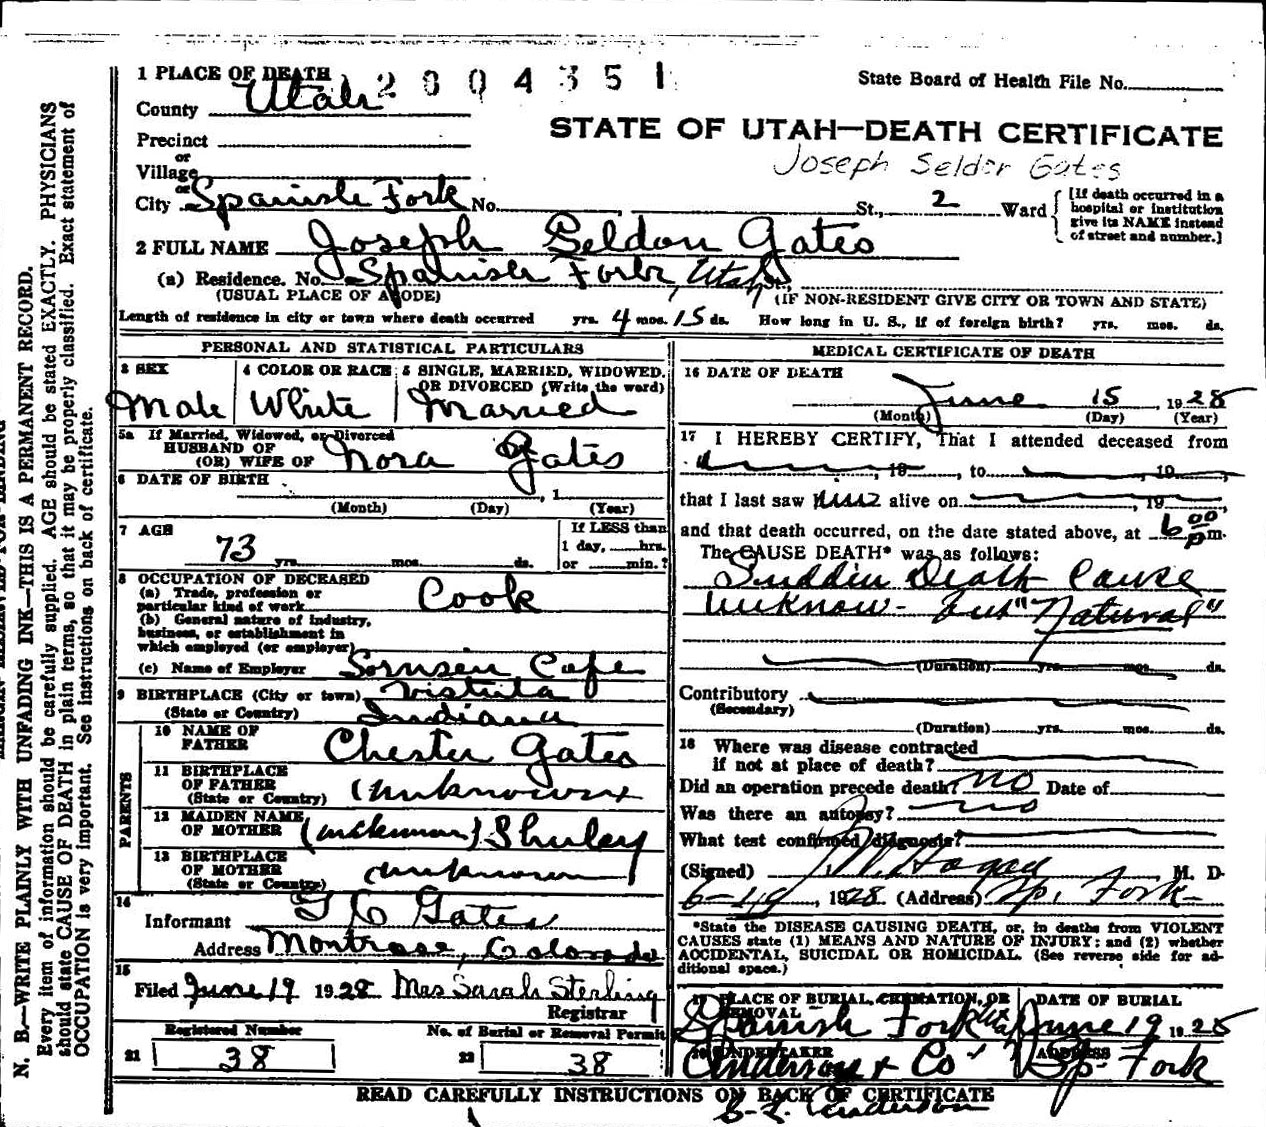 1 PLACE OF DEATH 2004351
State Board of Health File No.
County Utah
STATE OF UTAH—DEATH CERTIFICATE
Precinct
Joseph Seldor Gates
or
Village
or
City Spanish Fork No. St., 2 Ward
[If death occurred in a
hospital or institution
give its NAME instead
of street and number.]
2 FULL NAME Joseph Seldon Gates
(a) Residence. No. Spanish Fork, Utah
(USUAL PLACE OF ABODE) (IF NON-RESIDENT GIVE CITY OR TOWN AND STATE)
Length of residence in city or town where death occurred yrs. 4 mos. 15 ds. How long in U. S., if of foreign birth? yrs. mos. ds.
PERSONAL AND STATISTICAL PARTICULARS
3 SEX 4 COLOR OR RACE 5 SINGLE, MARRIED, WIDOWED,
OR DIVORCED (Write the word)
Male White Married
5a If Married, Widowed, or Divorced
HUSBAND OF
(OR) WIFE OF Nora Gates
6 DATE OF BIRTH , 1
(Month) (Day) (Year)
7 AGE If LESS than
73 yrs. mos. ds. 1 day, hrs.
or min.?
8 OCCUPATION OF DECEASED
(a) Trade, profession or
particular kind of work Cook
(b) General nature of industry,
business, or establishment in
which employed (or employer)
(c) Name of Employer Sornsen Cafe
9 BIRTHPLACE (City or town) Vistula
(State or Country) Indiana
PARENTS
10 NAME OF
FATHER Chester Gates
11 BIRTHPLACE
OF FATHER
(State or Country) (unknown)
12 MAIDEN NAME
OF MOTHER (unknown) Shuley
13 BIRTHPLACE
OF MOTHER
(State or Country) unknown
14
Informant Gates
Address Montrose, Colorado
15
Filed June 19 1928 Mrs Sarah Sterling
Registrar
Registered Number No. of Burial or Removal Permit
21 38 22 38
MEDICAL CERTIFICATE OF DEATH
16 DATE OF DEATH
June 15 1928
(Month) (Day) (Year)
17 I HEREBY CERTIFY, That I attended deceased from
, 19 , to , 19
that I last saw him alive on , 19
and that death occurred, on the date stated above, at 6 00 pm.
The CAUSE DEATH* was as follows:
Suddin Death Cause
unknow- but "Natural"
(Duration) yrs. mos. ds.
Contributory
(Secondary)
(Duration) yrs. mos. ds.
18 Where was disease contracted
if not at place of death?
Did an operation precede death? no Date of
Was there an autopsy? no
What test confirmed diagnosis?
(Signed) M. D.
6-19, 1928 (Address) Sp. Fork-
*State the DISEASE CAUSING DEATH, or, in deaths from VIOLENT
CAUSES state (1) MEANS AND NATURE OF INJURY; and (2) whether
ACCIDENTAL, SUICIDAL OR HOMICIDAL. (See reverse side for ad-
ditional space.)
19 PLACE OF BURIAL, CREMATION, OR
REMOVAL
Spanish Fork Utah
DATE OF BURIAL
June 19 1928
20 UNDERTAKER
Anderson & Co
ADDRESS
Sp. Fork
READ CAREFULLY INSTRUCTIONS ON BACK OF CERTIFICATE
Anderson
N. B.—WRITE PLAINLY WITH UNFADING INK—THIS IS A PERMANENT RECORD.
Every item of information should be carefully supplied. AGE should be stated EXACTLY. PHYSICIANS
should state CAUSE OF DEATH in plain terms, so that it may be properly classified. Exact statement of
OCCUPATION is very important. See instructions on back of certificate.